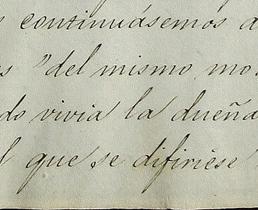 continuásemos a
s "del mismo mo
do vivia la dueña
l que se difiriese